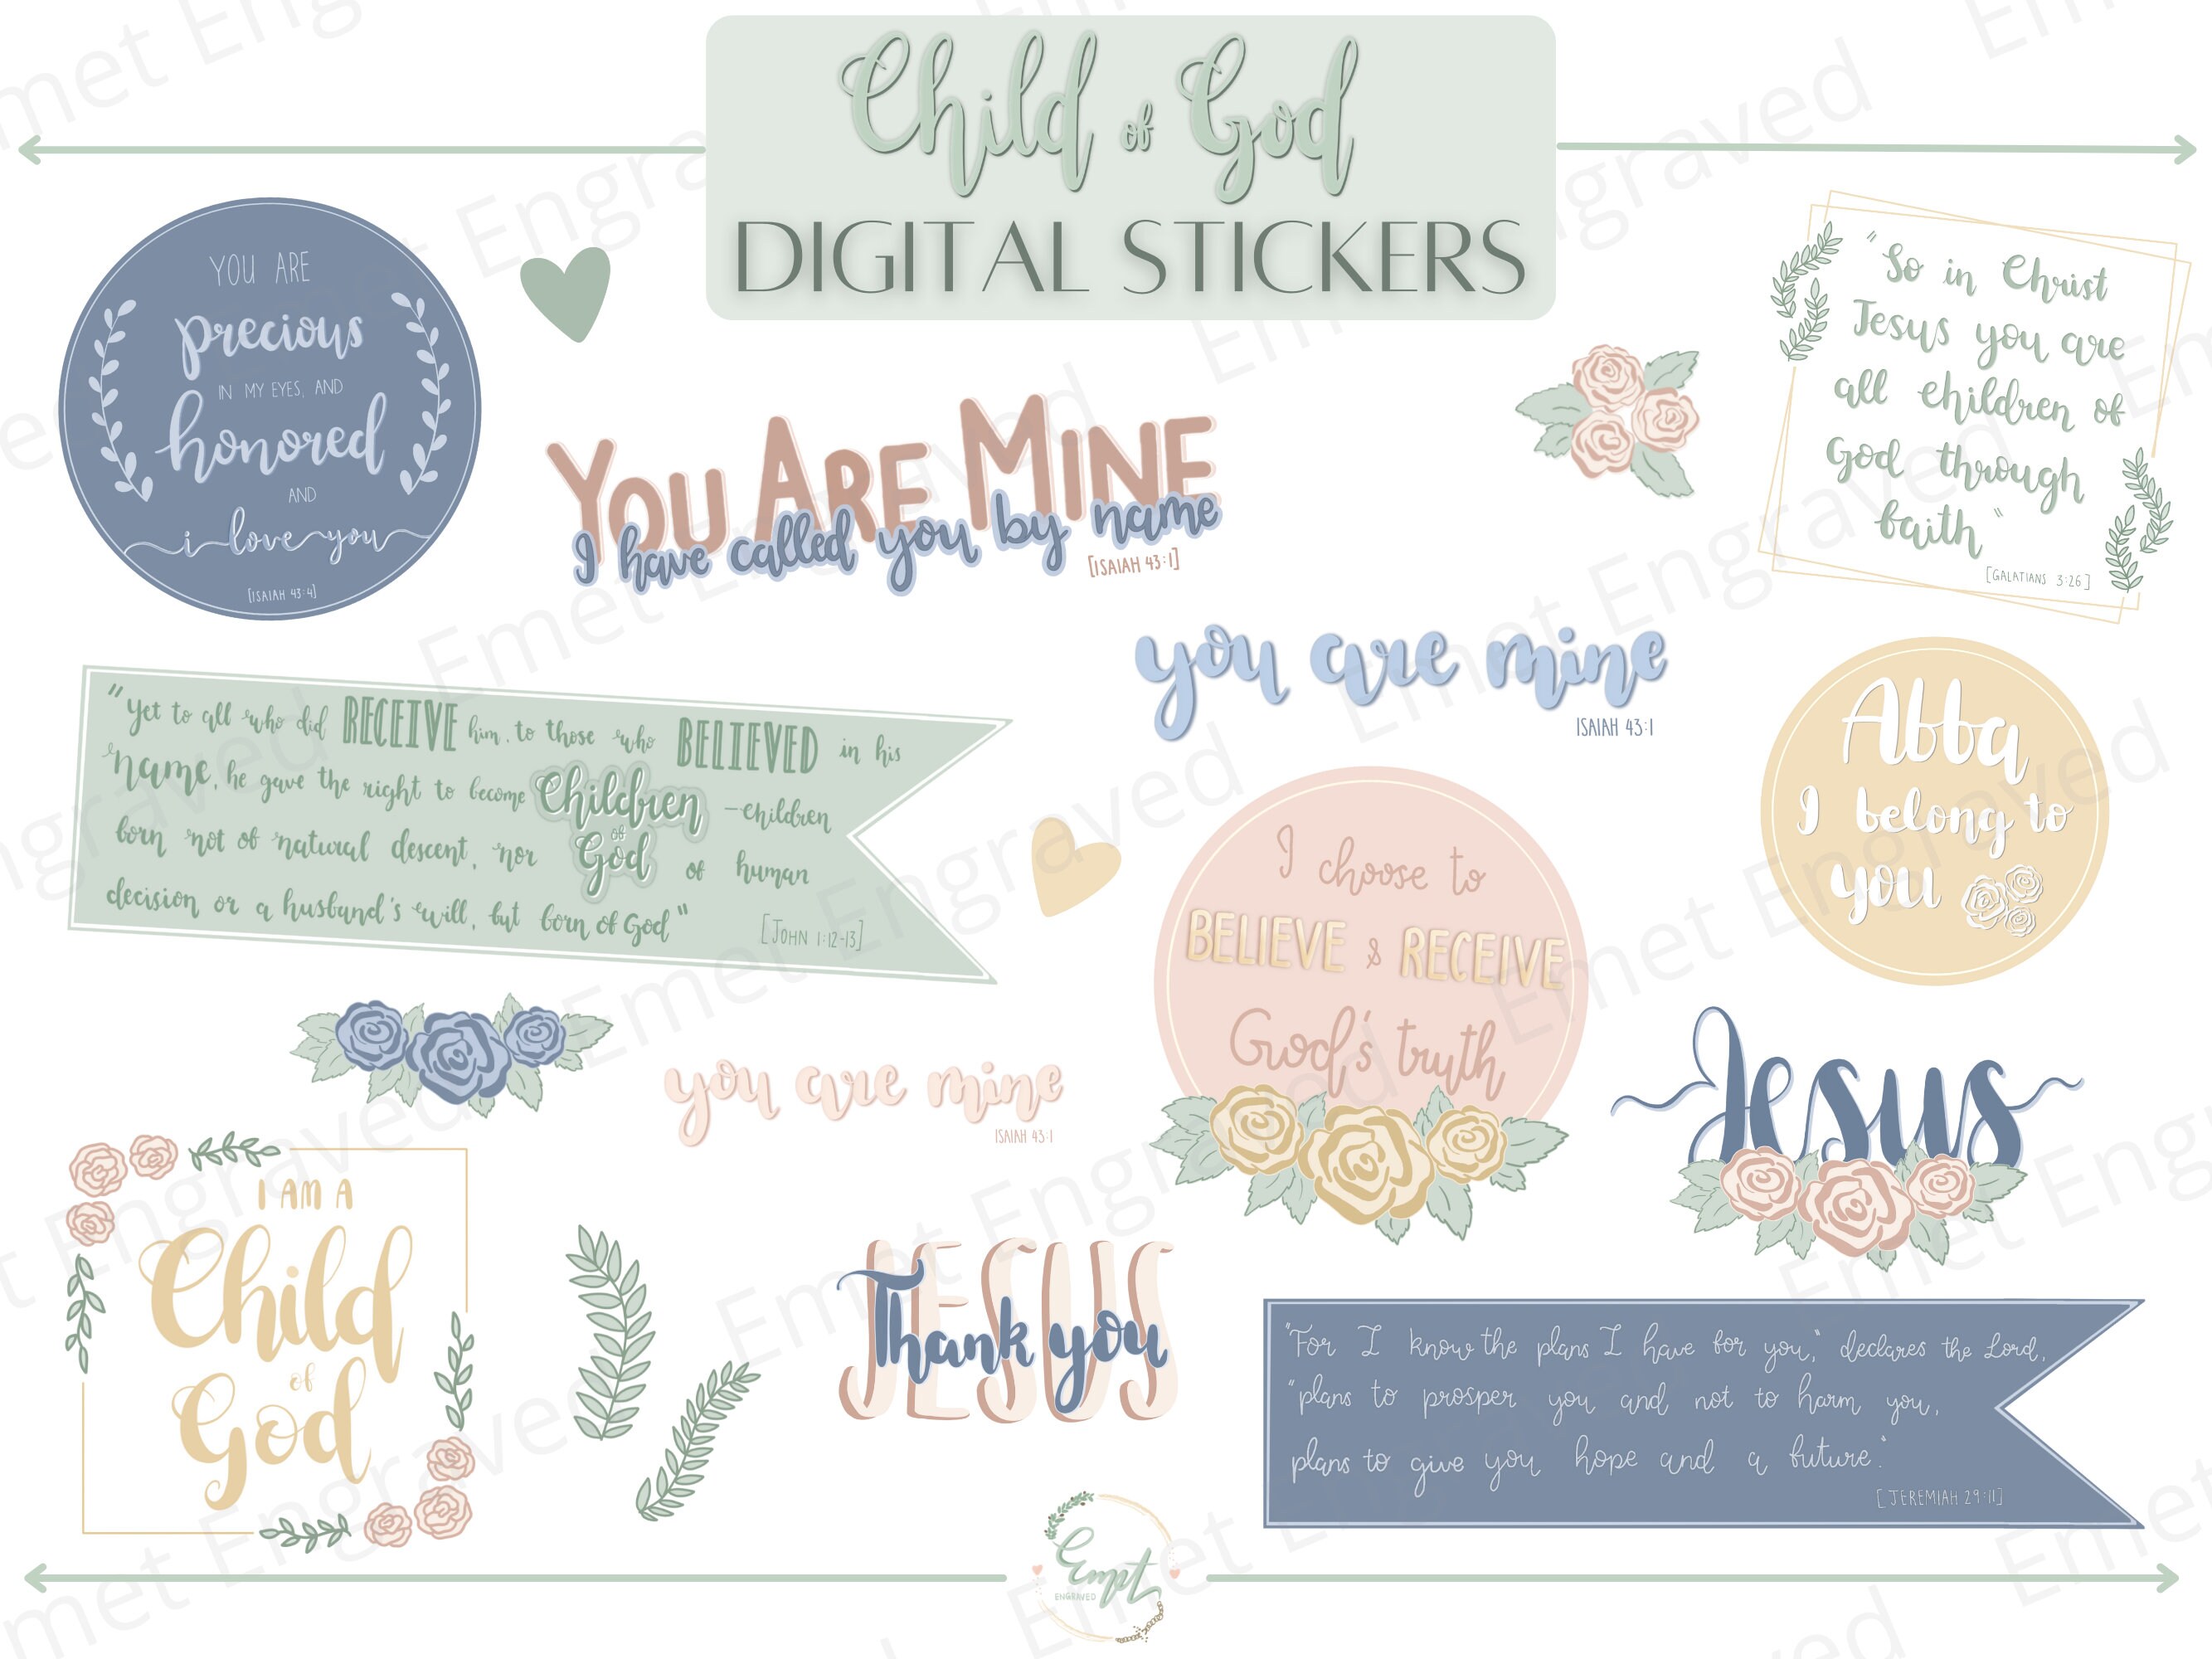 Child of God
DIGITAL STICKERS
YOU ARE
precious
IN MY EYES, AND
honored
AND
i love you
[ISAIAH 43:4]
YOU ARE MINE
I have called you by name
[ISAIAH 43:1]
"So in Christ
Jesus you are
all children of
God through
faith"
[GALATIANS 3:26]
you are mine
ISAIAH 43:1
"Yet to all who did RECEIVE him, to those who BELIEVED in his
name, he gave the right to become Children of God —children
born not of natural descent, nor of human
decision or a husband's will, but born of God"
[JOHN 1:12-13]
Abba
I belong to
you
I choose to
BELIEVE & RECEIVE
God's truth
Jesus
you are mine
ISAIAH 43:1
I AM A
Child
of
God
JESUS
Thank you
"For I know the plans I have for you," declares the Lord,
"plans to prosper you and not to harm you,
plans to give you hope and a future."
[JEREMIAH 29:11]
Emet
ENGRAVED
Emet Engraved